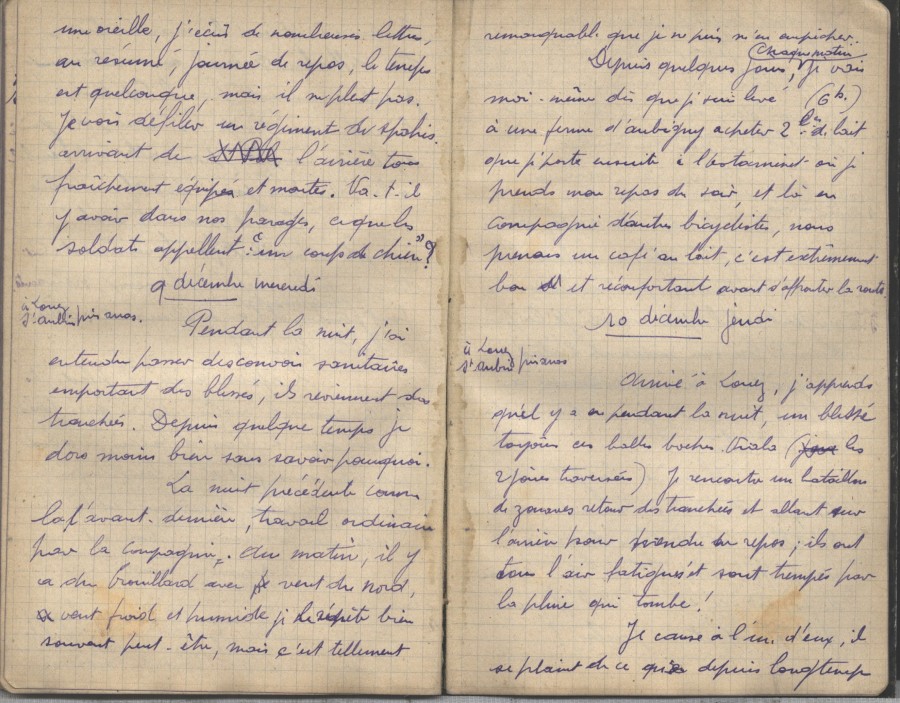 une oreille, j'écris de nombreuses lettres,
au résumé, journée de repos, le temps
est quelconque, mais il ne pleut pas.
Je vois défiler un régiment de spahis
arrivant de l'arrière tous
fraîchement équipés et montés. Va-t-il
y avoir dans nos parages, ce que les
soldats appellent : "un coup de chien" ?
9 décembre mercredi
à Louez
St Aubin puis anos.
Pendant la nuit, j'ai
entendu passer des convois sanitaires
emportant des blessés, ils reviennent des
tranchées. Depuis quelque temps je
dors moins bien sans savoir pourquoi.
La nuit précédente comme
la l'avant-dernière, travail ordinaire
par la compagnie. Au matin, il y
a du brouillard avec vent du nord,
vent froid et humide je le répète bien
souvent peut-être, mais c'est tellement
remarquable que je ne puis m'en empêcher.
Chaque matin
Depuis quelques jours, je vais
moi-même dès que je suis levé (6h.)
à une ferme d'aubigny acheter 2 de lait
que je porte ensuite à l'estaminet où je
prends mon repas du soir, et là en
compagnie d'autres bicyclistes, nous
prenons un café au lait, c'est extrêmement
bon et réconfortant avant d'affronter la route
10 décembre jeudi
à Louez
St Aubin puis anos
Arrivé à Louez, j'apprends
qu'il y a eu pendant la nuit, un blessé
toujours ces balles boches (les
2 joues traversées) Je rencontre un bataillon
de zouaves retour des tranchées et allant sur
l'arrière pour prendre du repos ; ils ont
tous l'air fatigués et sont trempés par
la pluie qui tombe !
Je cause à l'un d'eux, il
se plaint de ce que depuis longtemps